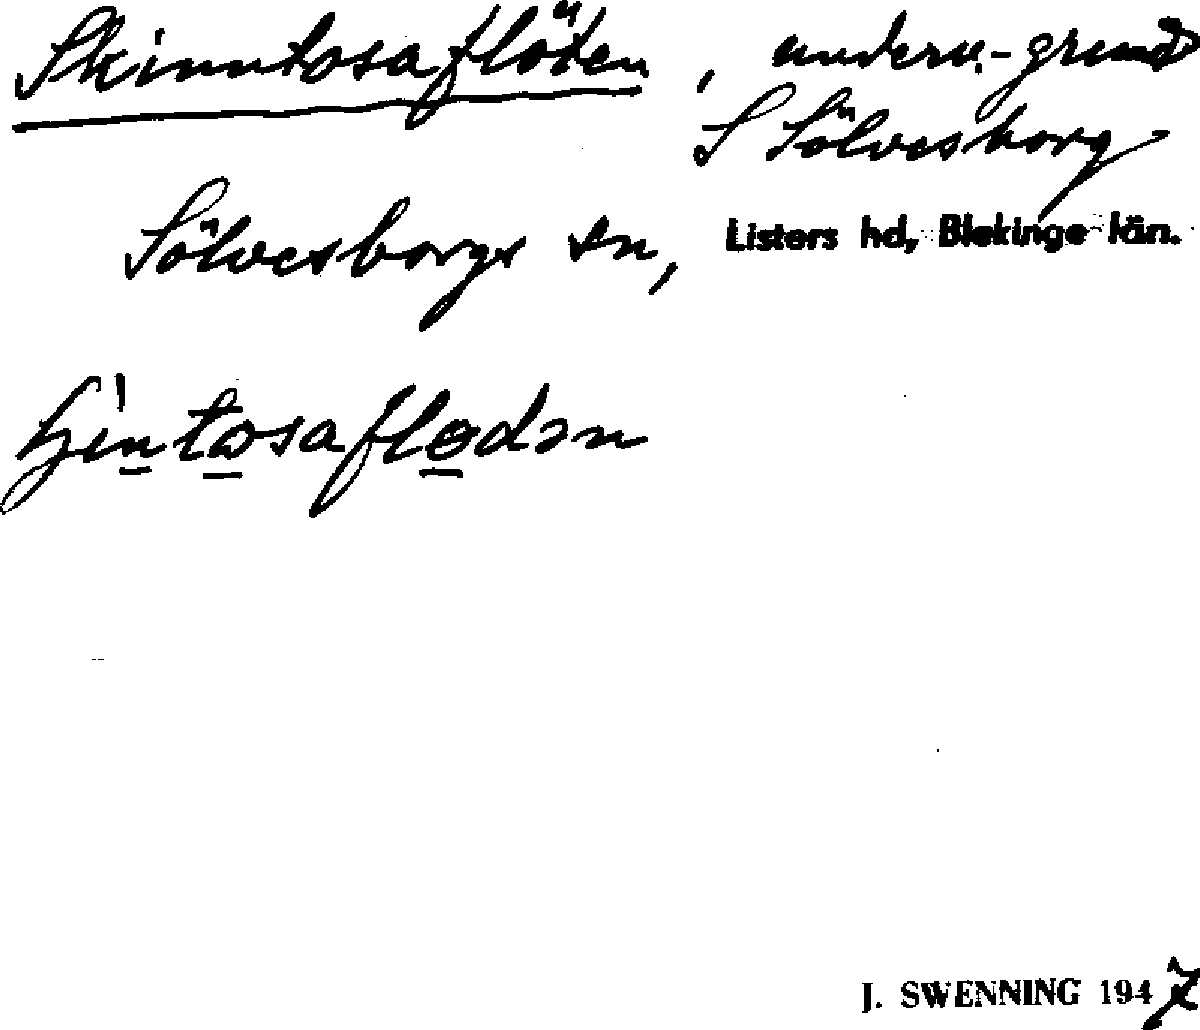 Skinntosaflöten, underv.-grund
S Sölvesborg
Sölvesborgs sn, Listers hd, Blekinge län.
J. SWENNING 1947